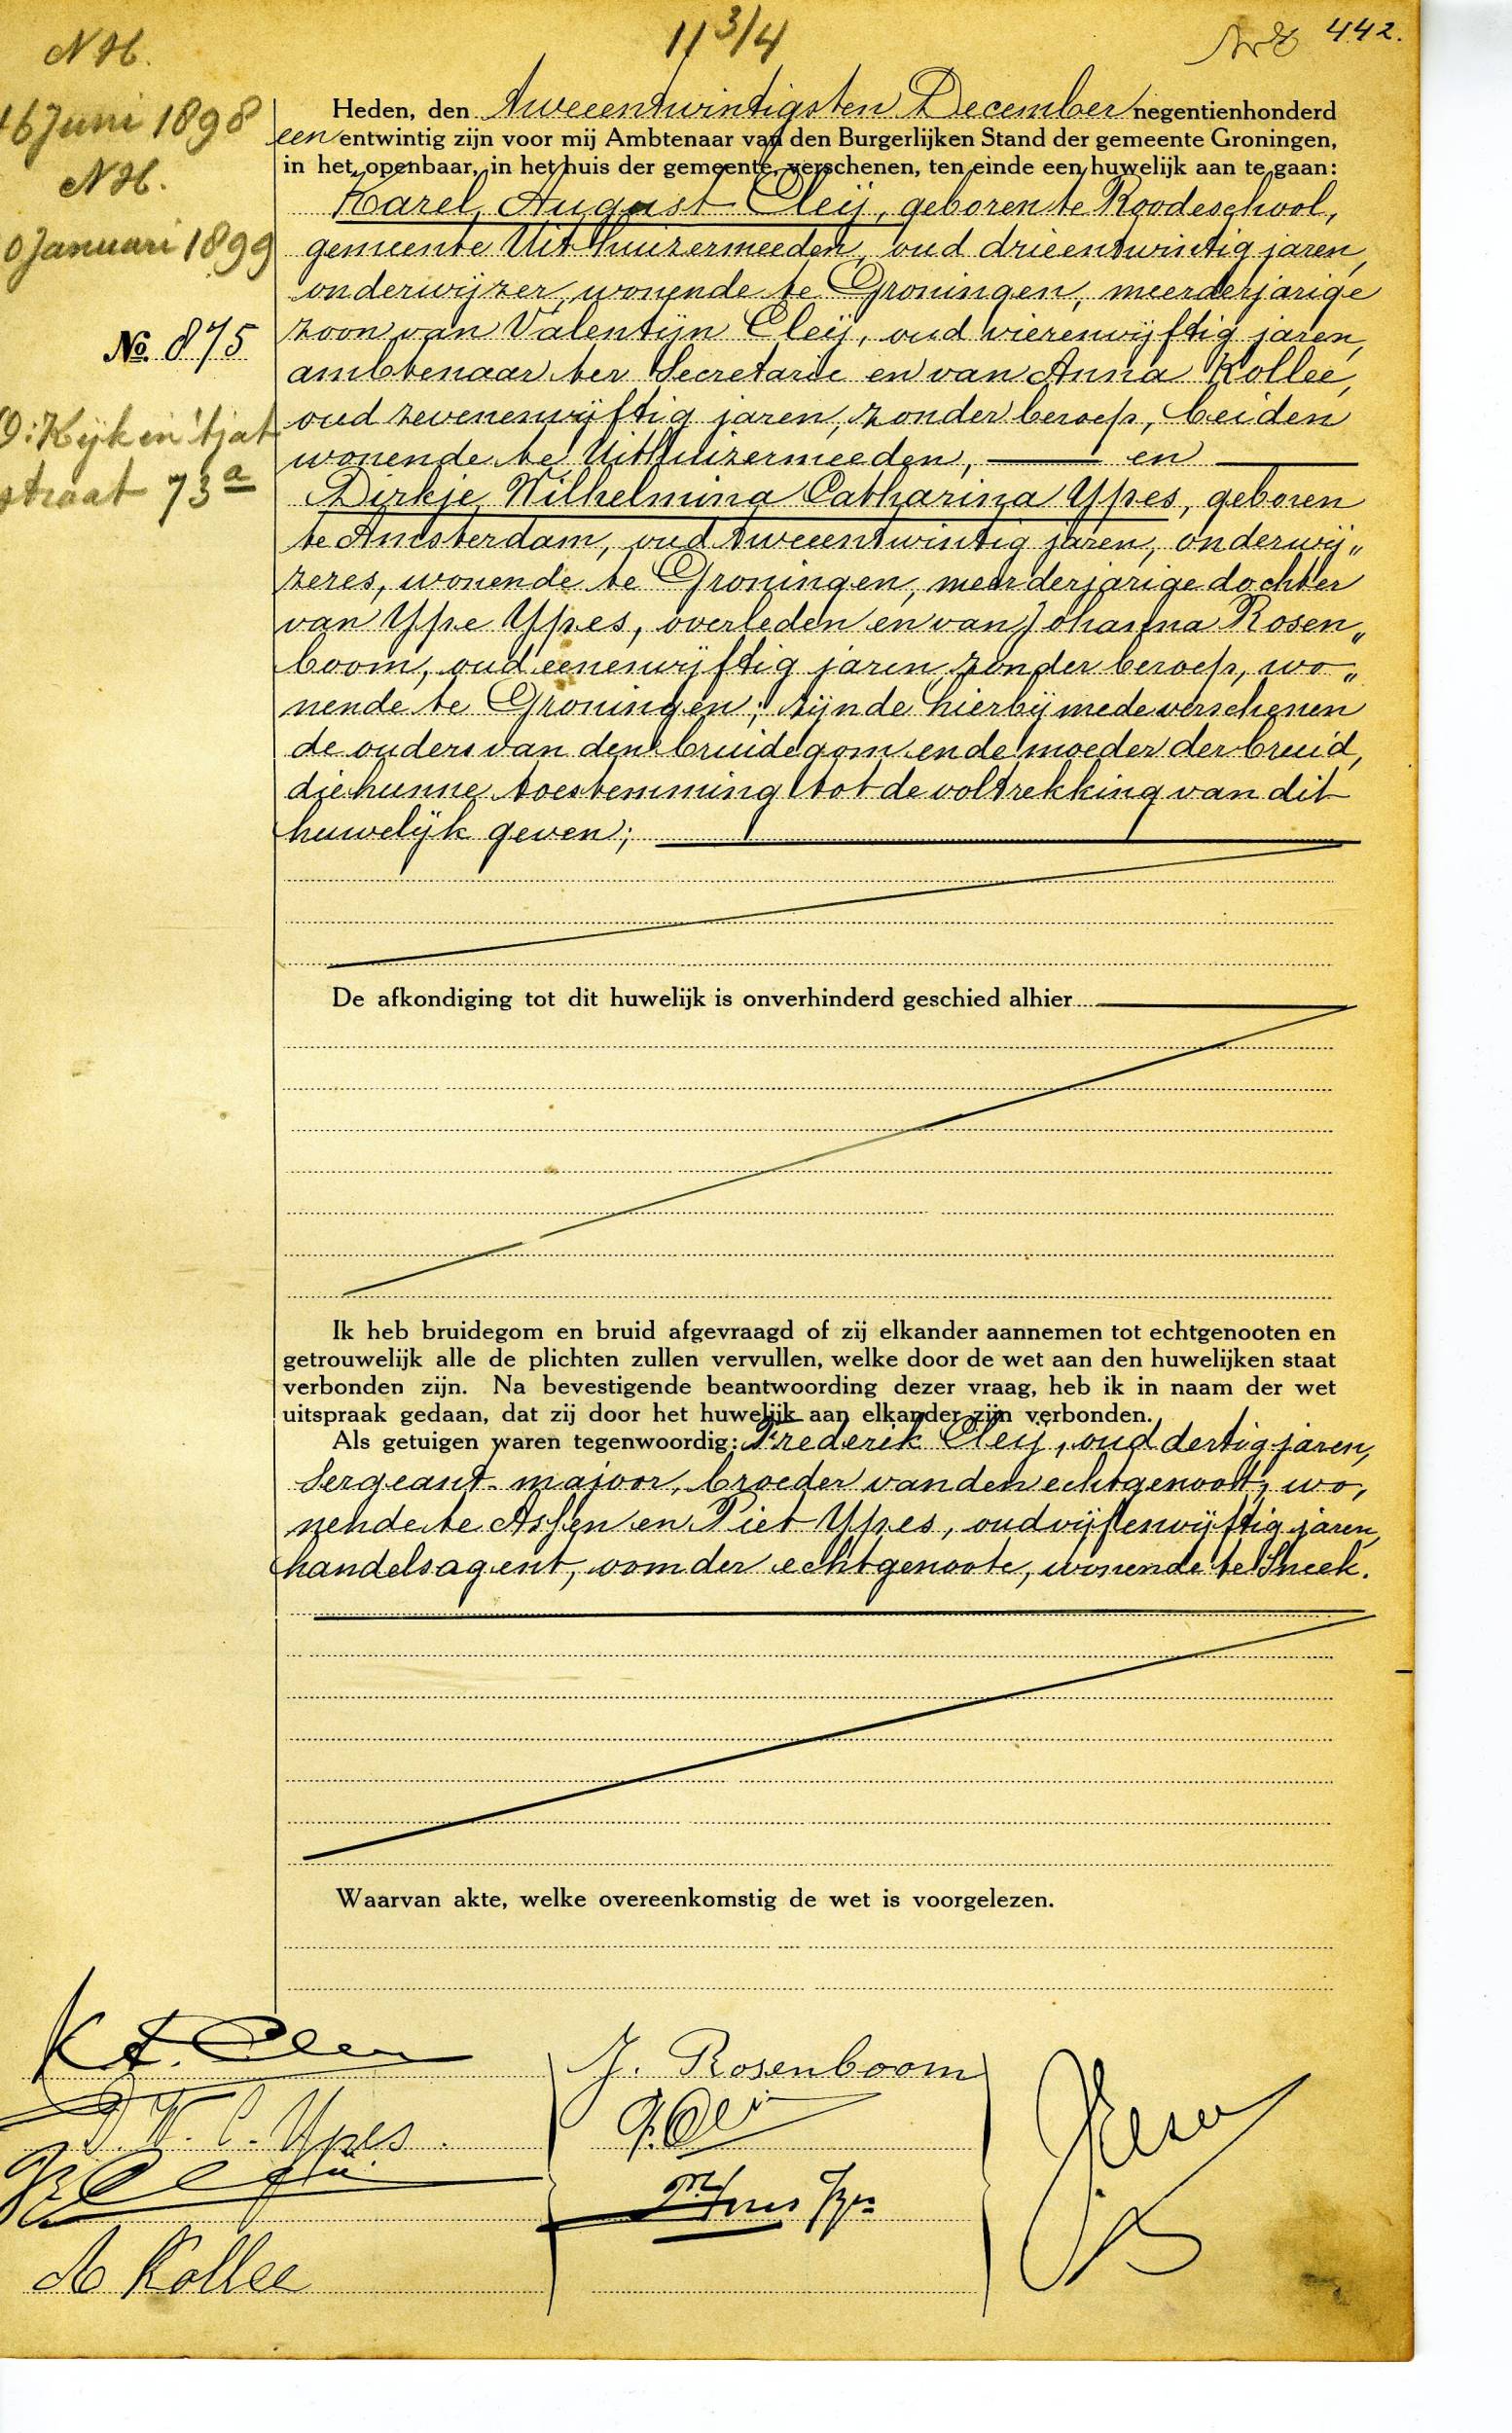 NH.
11 3/4
442.
16 Juni 1898
NH.
0 Januari 1899
No. 875
O: Kijk in 't jat
straat 73a
Heden, den tweeentwintigsten December negentienhonderd
een entwintig zijn voor mij Ambtenaar van den Burgerlijken Stand der gemeente Groningen,
in het openbaar, in het huis der gemeente, verschenen, ten einde een huwelijk aan te gaan:
Karel August Cleij, geboren te Roodeschool,
gemeente Uithuizermeeden, oud drieentwintig jaren,
onderwijzer, wonende te Groningen, meerderjarige
zoon van Valentijn Cleij, oud vierenvijftig jaren,
ambtenaar ter Secretarie en van Anna Kollee,
oud zevenenvijftig jaren, zonder beroep, beiden
wonende te Uithuizermeeden, en
Dirkje Wilhelmina Catharina Ypes, geboren
te Amsterdam, oud tweeentwintig jaren, onderwij„
zeres, wonende te Groningen, meerderjarige dochter
van Ype Ypes, overleden en van Johanna Rosen„
boom, oud eenenvijftig jaren, zonder beroep, wo„
nende te Groningen; zijnde hierbij mede verschenen
de ouders van den bruidegom en de moeder der bruid,
die hunne toestemming tot de voltrekking van dit
huwelijk geven;
De afkondiging tot dit huwelijk is onverhinderd geschied alhier
Ik heb bruidegom en bruid afgevraagd of zij elkander aannemen tot echtgenooten en
getrouwelijk alle de plichten zullen vervullen, welke door de wet aan den huwelijken staat
verbonden zijn. Na bevestigende beantwoording dezer vraag, heb ik in naam der wet
uitspraak gedaan, dat zij door het huwelijk aan elkander zijn verbonden.
Als getuigen waren tegenwoordig: Frederik Cleij, oud dertig jaren,
sergeant-majoor, broeder van den echtgenoot, wo,
nende te Assen en Piet Ypes, oud vijfenvijftig jaren,
handelsagent, oom der echtgenoote, wonende te Sneek.
Waarvan akte, welke overeenkomstig de wet is voorgelezen.
K A. Cleij
D. W. C. Ypes.
A Kollee
J. Rosenboom
F. Cleij